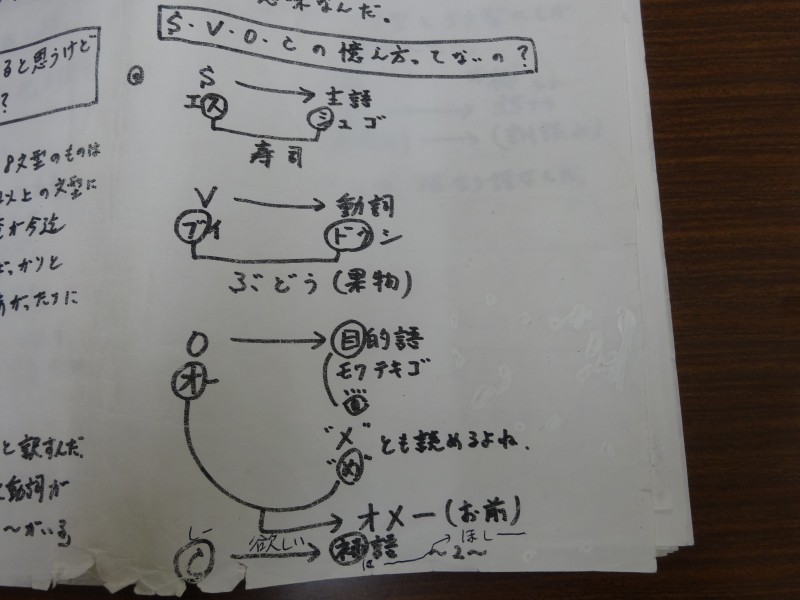 S・V・O・Cの憶え方ってないの?
ると思うけど
?
8文型のものは
以上の文型に
と訳すんだ。
動詞が
S → 主語
エス シュゴ
寿司
V → 動詞
ブイ ドウシ
ぶどう(果物)
O → 目的語
オー モクテキゴ
目
"メ"
"め" とも読めるよね。
オメー(お前)
C 欲しい → 補語
シー ほ ほしー
~2~